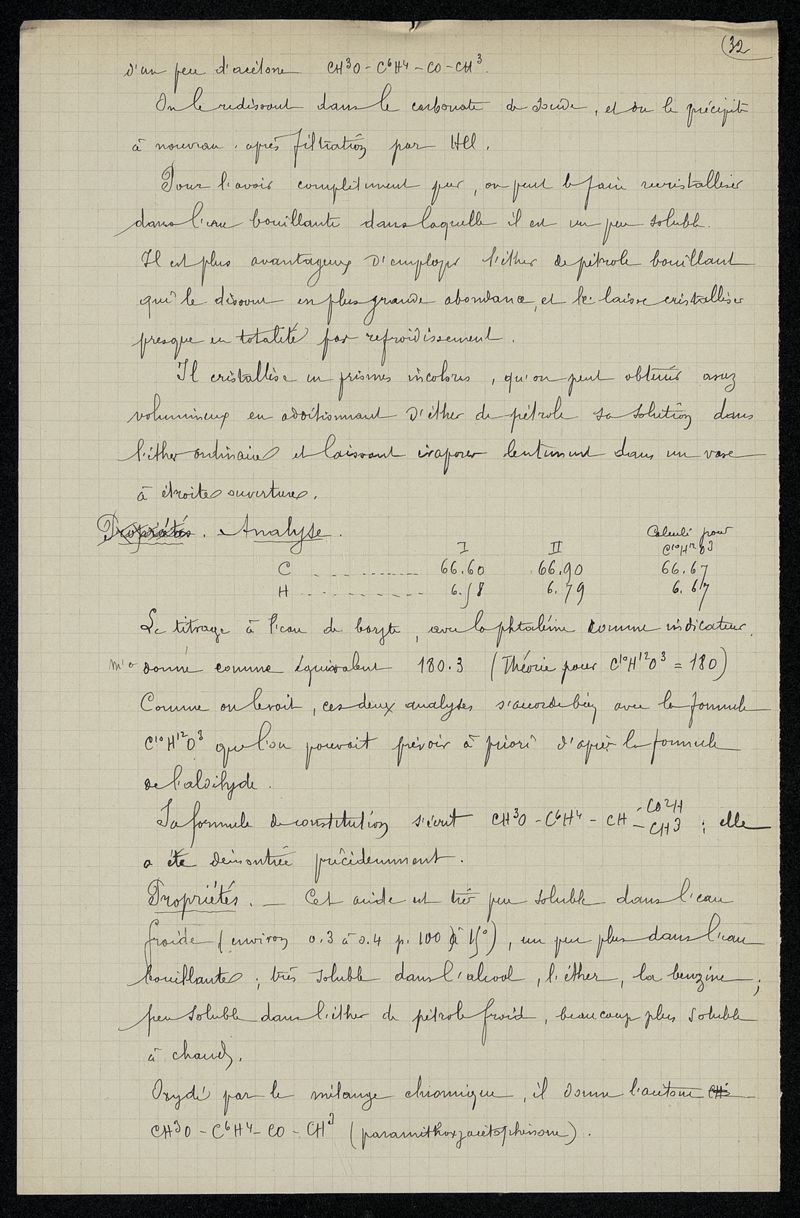 (32
d'un peu d'acétone CH³O - C⁶H⁴ - CO - CH³.
On le redissout dans le carbonate de soude, et on le précipite
à nouveau après filtration par HCl.
Pour l'avoir complètement pur, on peut le faire recristalliser
dans l'eau bouillante dans laquelle il est un peu soluble.
Il est plus avantageux d'employer l'éther de pétrole bouillant
qui le dissout en plus grande abondance, et le laisse cristalliser
presque en totalité par refroidissement.
Il cristallise en prismes incolores, qu'on peut obtenir assez
volumineux en additionnant d'éther de pétrole sa solution dans
l'éther ordinaire et laissant évaporer lentement dans un vase
à étroite ouverture.
Propriétés. Analyse.
I II Calculé pour C¹⁰H¹²O³
C ........... 66.60 66.90 66.67
H ........... 6.58 6.79 6.67
Le titrage à l'eau de baryte, avec la phtaléine comme indicateur,
m'a donné comme équivalent 180.3 (Théorie pour C¹⁰H¹²O³ = 180)
Comme on le voit, ces deux analyses s'accordent bien avec la formule
C¹⁰H¹²O³ que l'on pouvait prévoir à priori d'après la formule
de l'aldéhyde.
Sa formule de constitution s'écrit CH³O - C⁶H⁴ - CH - CO²H - CH³ ; elle
a été démontrée précédemment.
Propriétés. - Cet acide est très peu soluble dans l'eau
froide (environ 0.3 à 0.4 p. 100 à 15°), un peu plus dans l'eau
bouillante ; très soluble dans l'alcool, l'éther, la benzine ;
peu soluble dans l'éther de pétrole froid, beaucoup plus soluble
à chaud.
Oxydé par le mélange chromique, il donne l'acétone CH³
CH³O - C⁶H⁴ - CO - CH³ (paraméthoxyacétophénone).